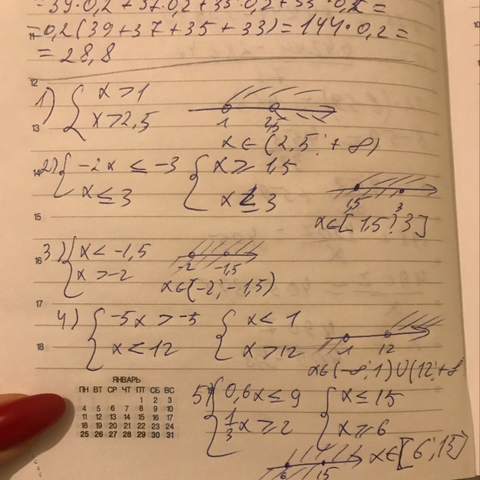 =39·0,2+37·0,2+35·0,2+33·0,2=
=0,2(39+37+35+33)=144·0,2=
=28,8
12
1) { x>1
x>2,5
1 2,5
13
x∈(2,5; +∞)
14
2) { -2x ≤ -3 { x ≥ 1,5
x ≤ 3 x ≤ 3
1,5 3
15
x∈[1,5; 3]
3) { x < -1,5
x > -2
-2 -1,5
16
x∈(-2; -1,5)
17
4) { -5x > -5 { x < 1
x < 12 x > 12
1 12
18
x∈(-∞; 1)∪(12; +∞
ЯНВАРЬ
ПН ВТ СР ЧТ ПТ СБ ВС
1 2 3
4 5 6 7 8 9 10
11 12 13 14 15 16 17
18 19 20 21 22 23 24
25 26 27 28 29 30 31
5) { 0,6x ≤ 9 { x ≤ 15
1/3 x ≥ 2 x ≥ 6
6 15
x∈[6; 15]